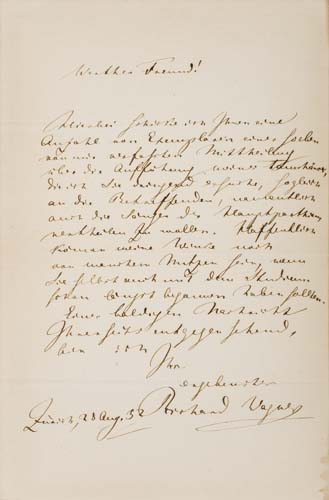 Werther Freund!
Hierbei schicke ich Ihnen eine
Anzahl von Exemplaren einer soeben
von mir verfassten Mittheilung
über die Aufführung meines Tannhäuser,
die ich Sie dringend ersuche, sogleich
an die Betreffenden, namentlich
auch die Sänger der Hauptparthien,
vertheilen zu wollen. Hoffentlich
können meine Winke noch
von manchem Nutzen sein, wenn
Sie selbst auch mit dem Studium
schon längst begonnen haben sollten.
Einer baldigen Nachricht
Ihrerseits entgegensehend,
bin ich
Ihr
ergebenster
Zürich, 28 Aug. 52 Richard Wagner